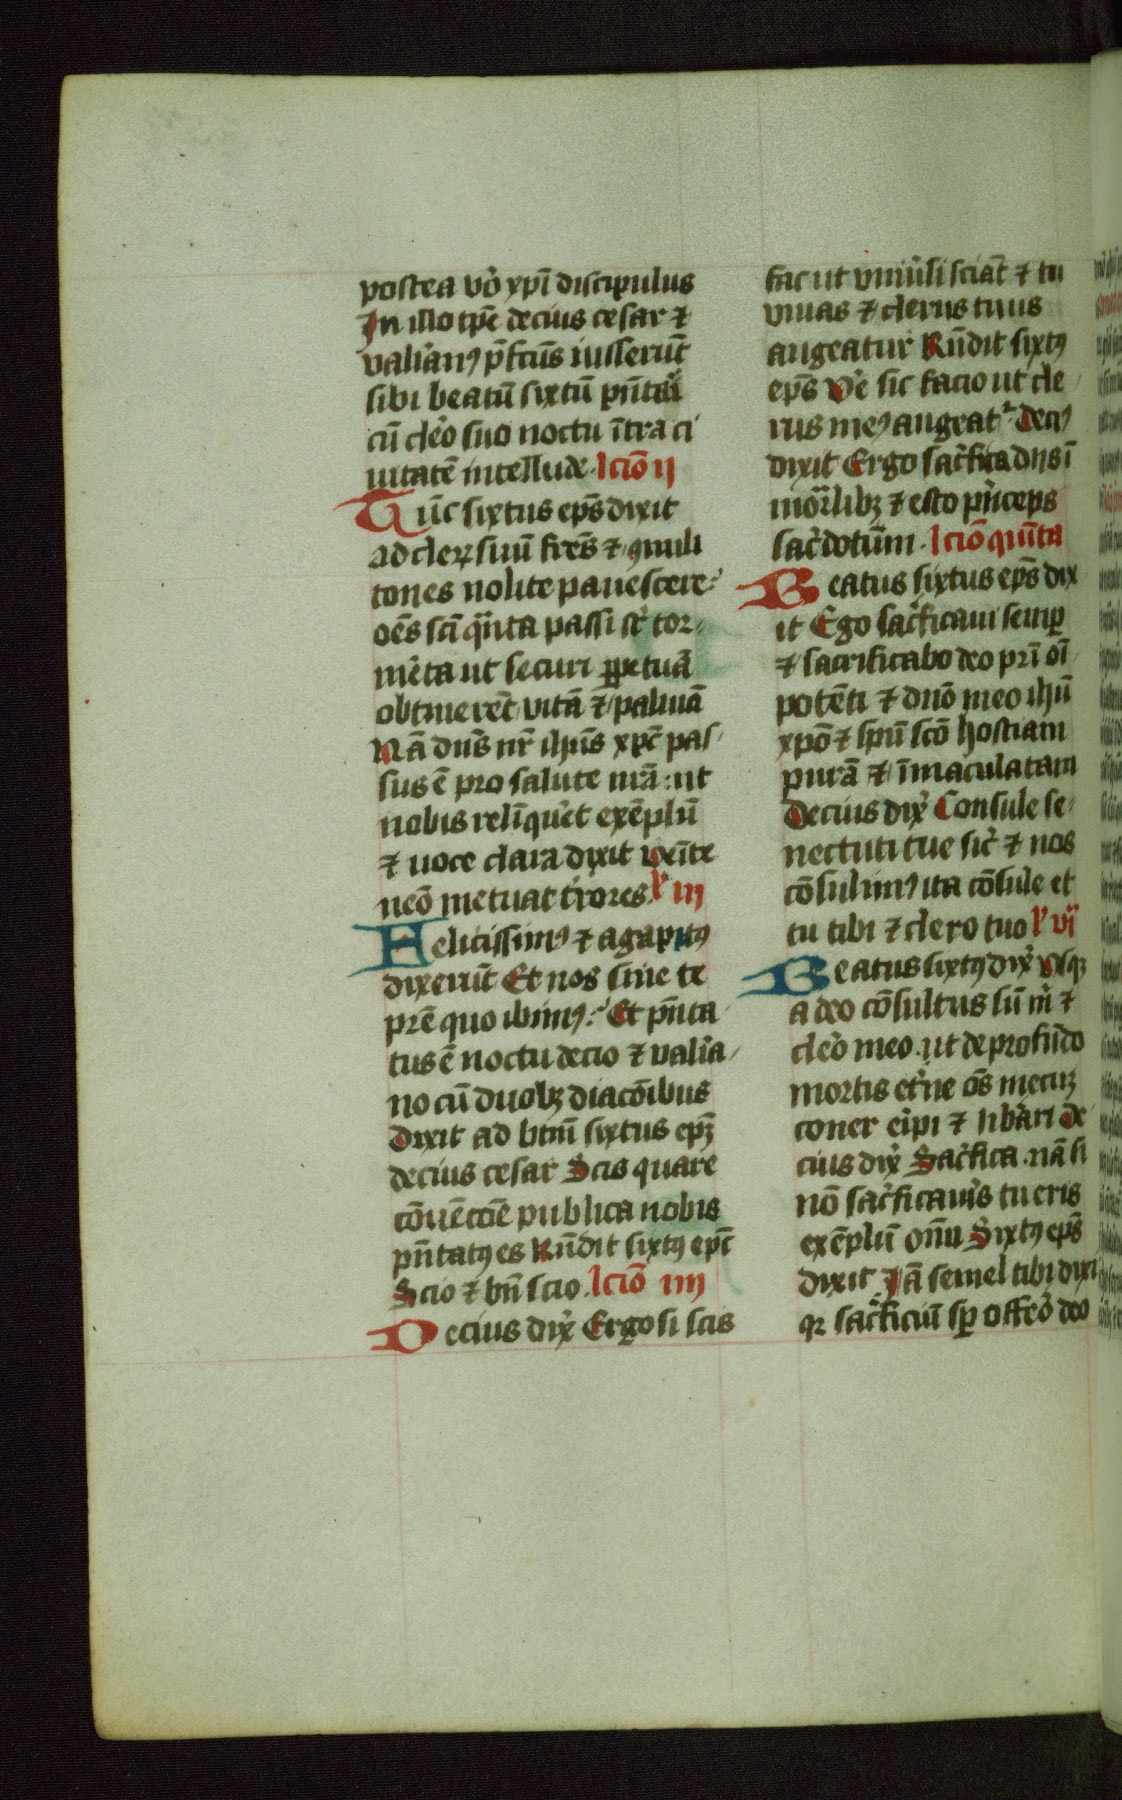 postea vo᷑ xpı̄ discipulus
In illo tp̄e decius cesar ⁊
valian᷒ p̄fcūs iusserūt
sibi beatū sixtū pn̄tari
cū cleo suo noctu īt̄ra ci
uitatē intellude. lcıō ıı
Tūc sixtus ep̄s dixit
ad cleꝝ suū fr̄es ⁊ ꝯmili
tones nolite pauescere
oēs scī qūta passi st̄ tor
mēta ut securi ꝑpetuā
obtinerēt vitā ⁊ palmā
Nā dn̄s nr̄ ihūs xp̄c pas
sus ē pro salute nrā ut
nobis relīquet exēplū
⁊ uoce clara dixit venīte
neō metuat trores. lº ııı
Felicissim᷒ ⁊ agapitus
dixerūt Et nos sine te
prē quo ibim᷒ Et pn̄ta
tus ē noctu decio ⁊ valia
no cū duobꝫ diacōibus
Dixit ad btm̄ sixtus epꝫ
decius cesar Scis quare
cōuēcōe publica nobis
pn̄tat᷒ es Rn̄dit sixt᷒ ep̄c
Scio ⁊ bn̄ scio. lcıō ıııı
Decius dix᷑ Ergo si scis
fac ut vniūsi sciāt ⁊ tu
viuas ⁊ clerus tuus
augeatur Rn̄dit sixt᷒
ep̄s Ve᷑ sic facio ut cle
rus me᷒ augeat᷑ Deci᷒
dixit Ergo sac᷑fica diis ī
mor᷑libꝫ ⁊ esto p᷑nceps
sac᷑dotūm. lcıō quīta
Beatus sixtus ep̄s dix
it Ego sac᷑ficaui semꝑ
⁊ sacrificabo deo pr̄i oı̄
potēti ⁊ dn̄o meo ihū
xpō ⁊ spū scō hostiam
purā ⁊ īmaculatam
Decius dix᷑ Consule se
nectuti tue sic᷑ ⁊ nos
cōsulim᷒ ita cōsule et
tu tibi ⁊ clero tuo lº vı
Beatus sixt᷒ dix᷑ Usqꝫ
adeo cōsultus sū m᷑ ⁊
cleo᷑ meo ut de profūdo
mortis et᷑ne os̄ mecuꝫ
coner ei᷑pi ⁊ lib᷑ari De
cius dix᷑ Sac᷑fica nā si
nō sac᷑ficau᷑s tu eris
exēplū oīm Sixt᷒ ep̄s
dixit Iā semel tibi dixi
qꝛ sac᷑ficiū sꝑ offeo᷑ deo